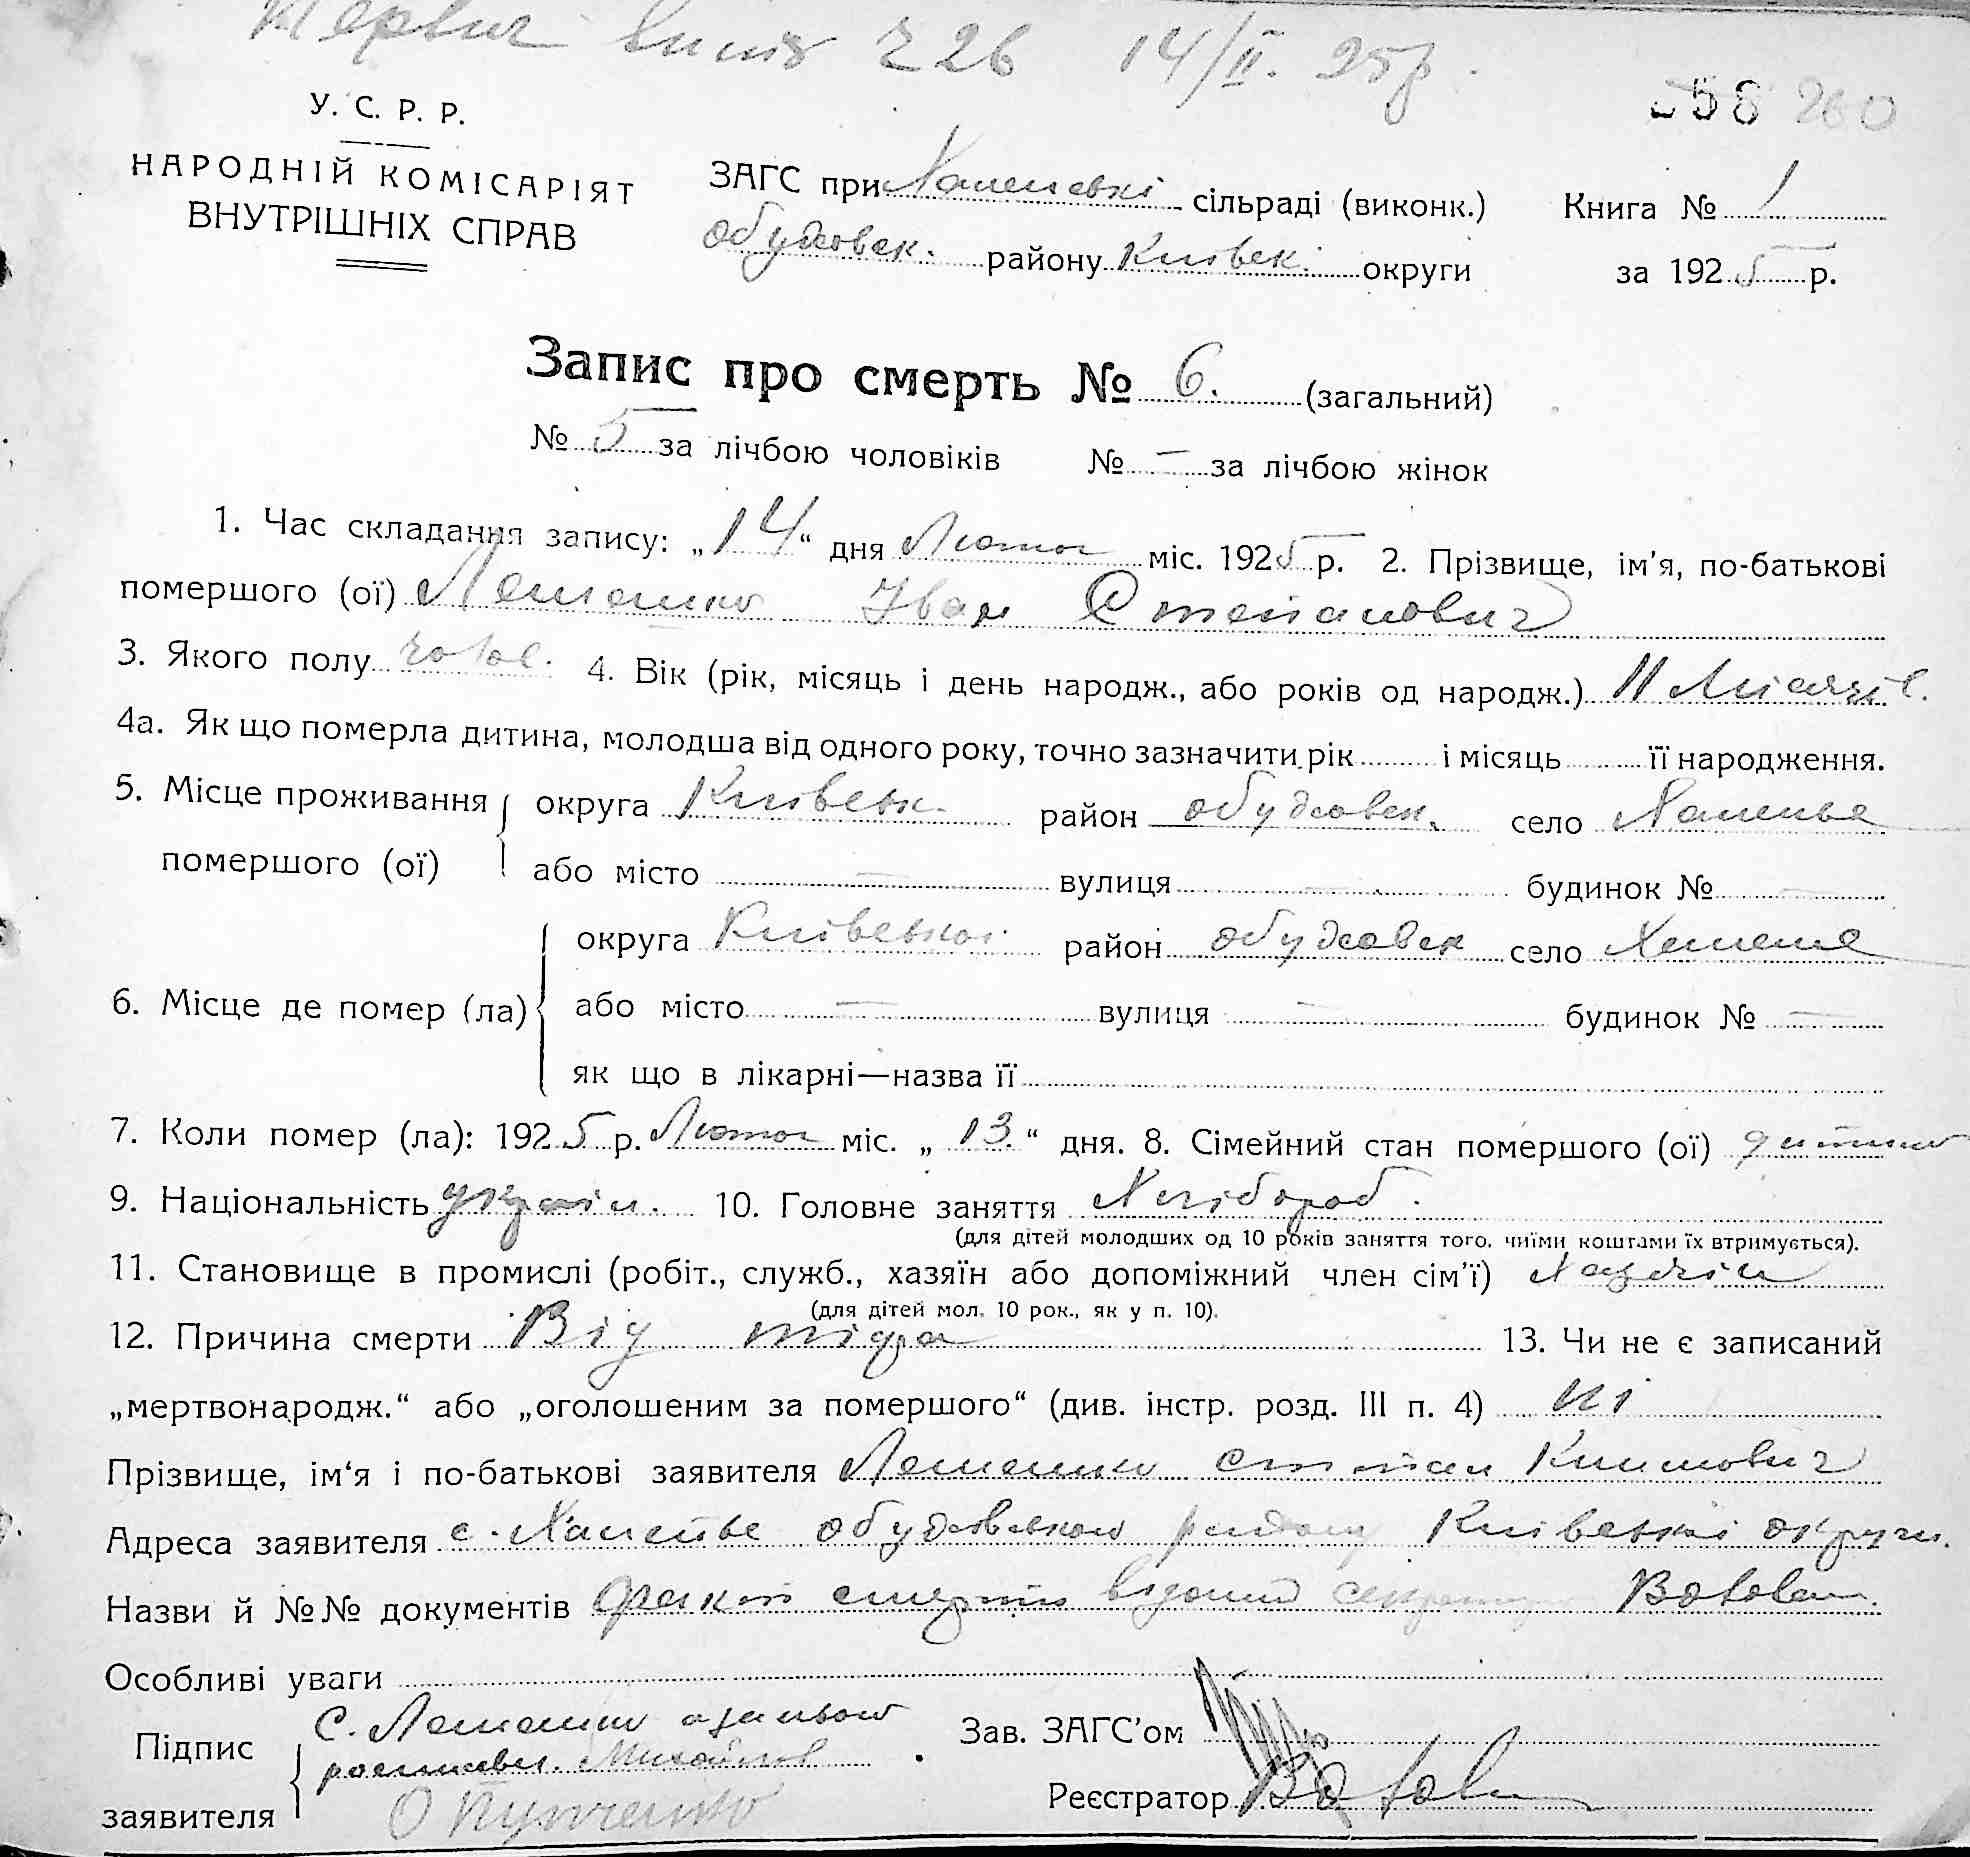 14/II. 25р.
260
У. С. Р. Р.
НАРОДНІЙ КОМІСАРІЯТ
ВНУТРІШНІХ СПРАВ
ЗАГС при сільраді (виконк.) Книга № 1
обуховск. району Київск. округи за 1925 р.
Запис про смерть № 6. (загальний)
№ 5 за лічбою чоловіків № — за лічбою жінок
1. Час складання запису: „14“ дня Лютого міс. 1925 р. 2. Прізвище, ім'я, по-батькові
помершого (ої) Іван Степанович
3. Якого полу чолов. 4. Вік (рік, місяць і день народж., або років од народж.) 11 Місяців.
4а. Як що померла дитина, молодша від одного року, точно зазначити рік і місяць її народження.
5. Місце проживання округа Київськ. район обуховск. село
помершого (ої) або місто — вулиця — будинок № —
округа Київської район обуховск село
6. Місце де помер (ла) або місто — вулиця — будинок № —
як що в лікарні—назва її
7. Коли помер (ла): 1925 р. Лютого міс. „13.“ дня. 8. Сімейний стан помершого (ої) дитина
9. Національність україн. 10. Головне заняття Хлібороб.
(для дітей молодших од 10 років заняття того, чиїми коштами їх втримується).
11. Становище в промислі (робіт., служб., хазяїн або допоміжний член сім'ї) Хазяїн
(для дітей мол. 10 рок., як у п. 10).
12. Причина смерти Від 13. Чи не є записаний
„мертвонародж.“ або „оголошеним за помершого“ (див. інстр. розд. III п. 4) ні
Прізвище, ім'я і по-батькові заявителя Степан Климович
Адреса заявителя с. обуховського району Київської округи.
Назви й №№ документів факт смерти відомий секретарю
Особливі уваги
Підпис С.
заявителя
Зав. ЗАГС'ом
Реєстратор